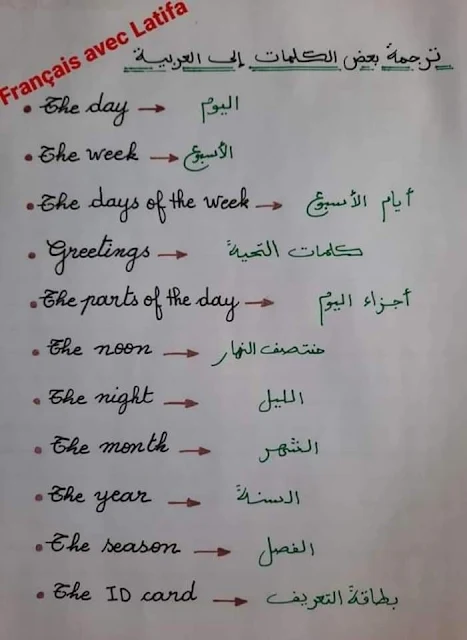 Français avec Latifa
ترجمة بعض الكلمات إلى العربية
• The day → اليوم
• The week → الأسبوع
• The days of the week → أيام الأسبوع
• Greetings → كلمات التحية
• The parts of the day → أجزاء اليوم
• The noon → منتصف النهار
• The night → الليل
• The month → الشهر
• The year → السنة
• The season → الفصل
• The ID card → بطاقة التعريف